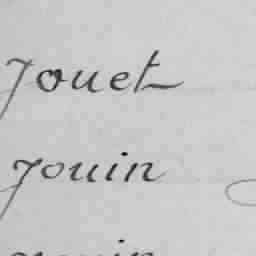 Jouet
Jouin